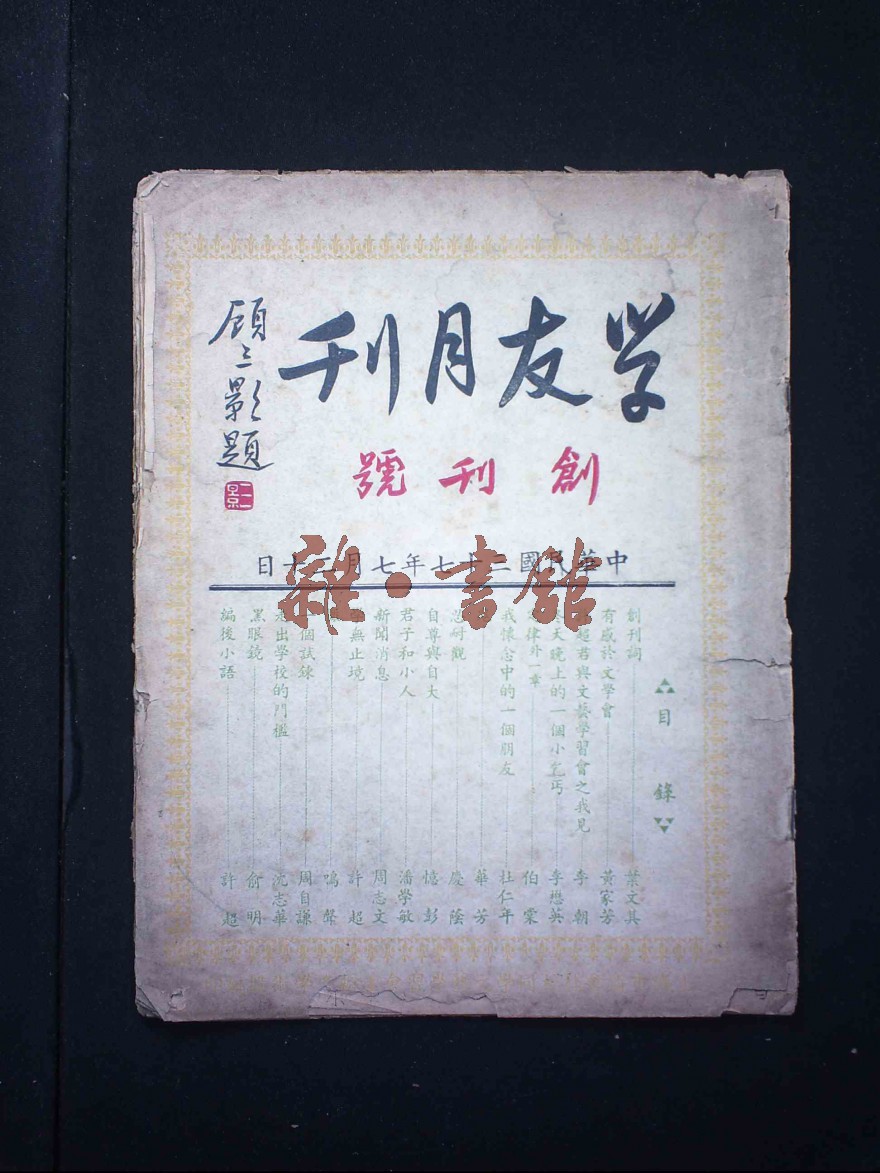 学友月刊
創刊號
顾三影題
中華民國三十七年七月二十日
目錄
創刊詞 葉文其
有感於文學會 黃家芳
超若與文藝學習會之我見 李朝
天晚上的一個小乞丐 李懋英
律外一章 伯栗
我懷念中的一個朋友 杜仁年
華芳
觀 慶蔭
自尊與自大 憶彭
君子和小人 潘學敏
新聞消息 周志文
無止境 許超
鳴聲
個試練 周自謙
走出學校的門檻 沈志華
黑眼鏡 俞明
編後小語 許超
雜·書館